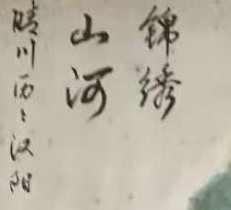 锦绣
山河
晴川历〻汉阳